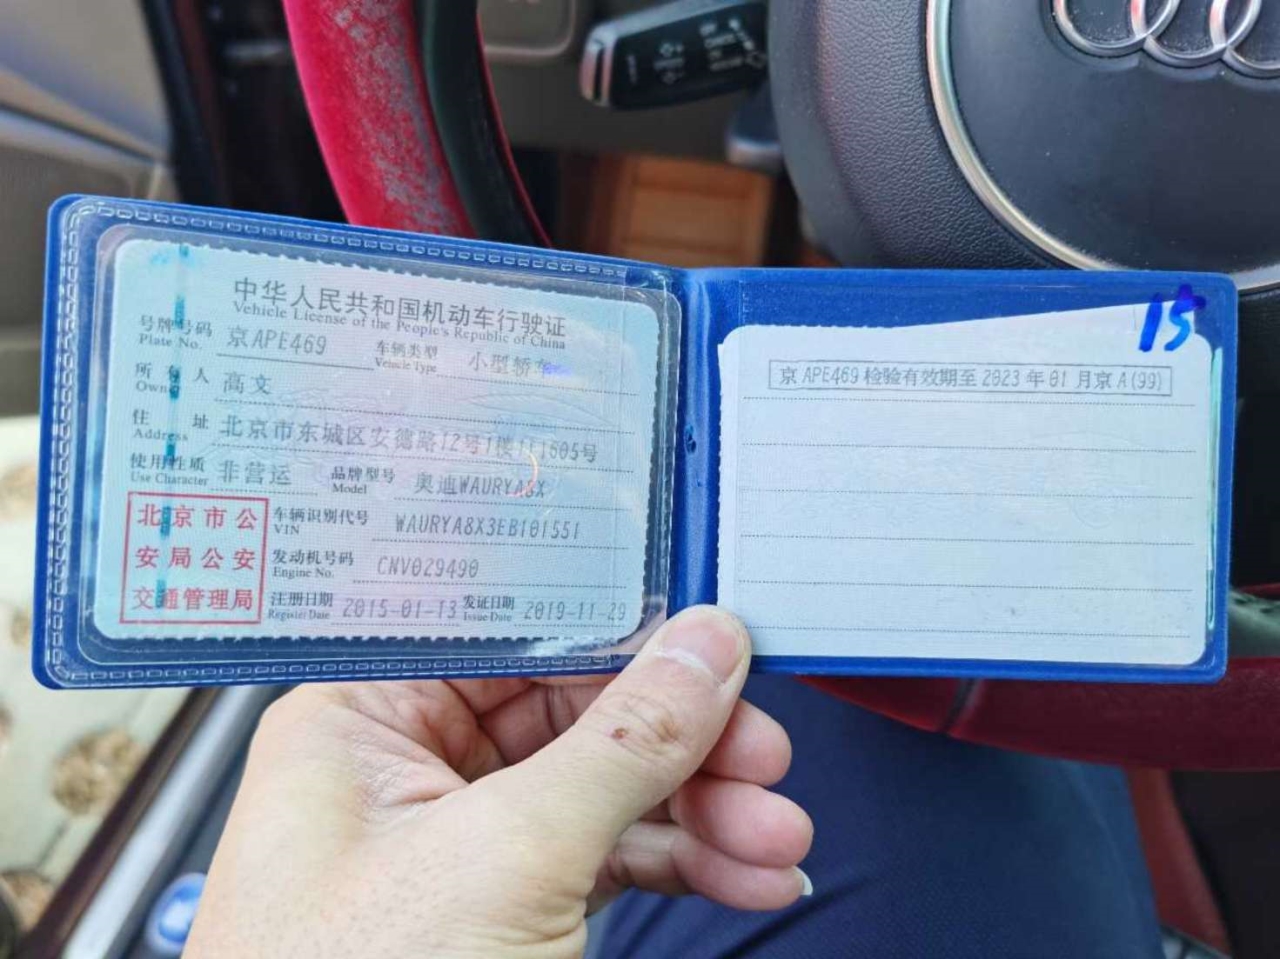 中华人民共和国机动车行驶证
Vehicle License of the People's Republic of China
号牌号码 京APE469 车辆类型 小型轿车
Plate No. Vehicle Type
所有人 高文
Owner
住址 北京市东城区安德路12号1楼1单1605号
Address
使用性质 非营运 品牌型号 奥迪WAURYA8X
Use Character Model
北京市公
安局公安
交通管理局
车辆识别代号 WAURYA8X3EB101551
VIN
发动机号码 CNV029490
Engine No.
注册日期 2015-01-13 发证日期 2019-11-29
Register Date Issue Date
15
京APE469检验有效期至2023年01月京A(99)